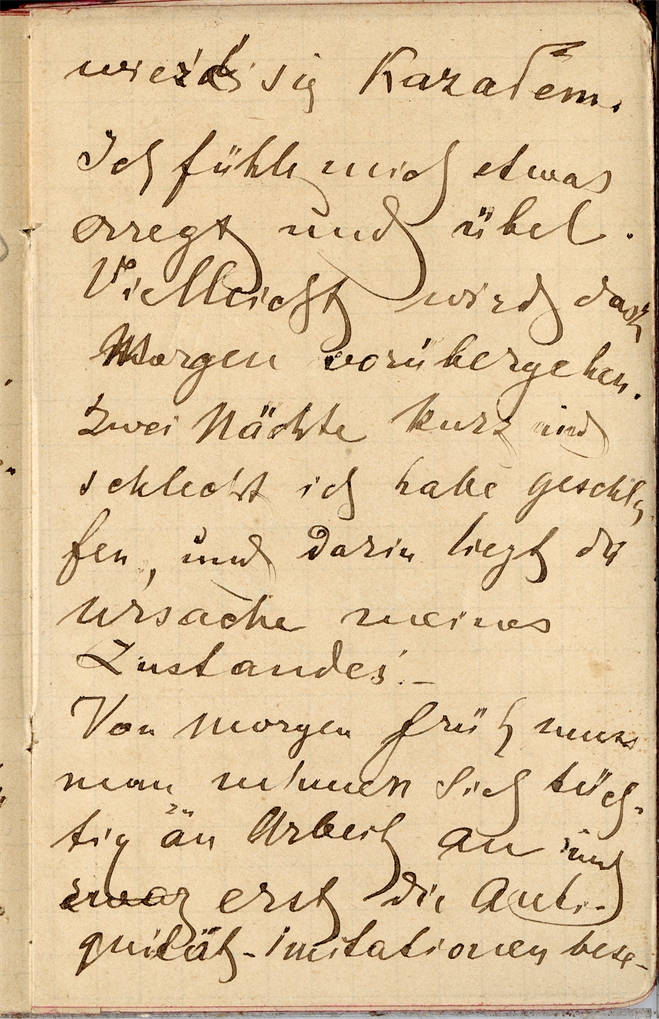 sig Karadem.
Ich fühle mich etwas
erregt und übel.
Vielleicht wird dass
Morgen vorübergehen.
Zwei Nächte kurz und
schlecht ich habe geschla
fen, und darin liegt die
Ursache meines
Zustandes. –
Von morgen früh muss
man nehmen sich tüch-
tig zu an Arbeit an und
zwar erst die Anti-
quität-imitationen